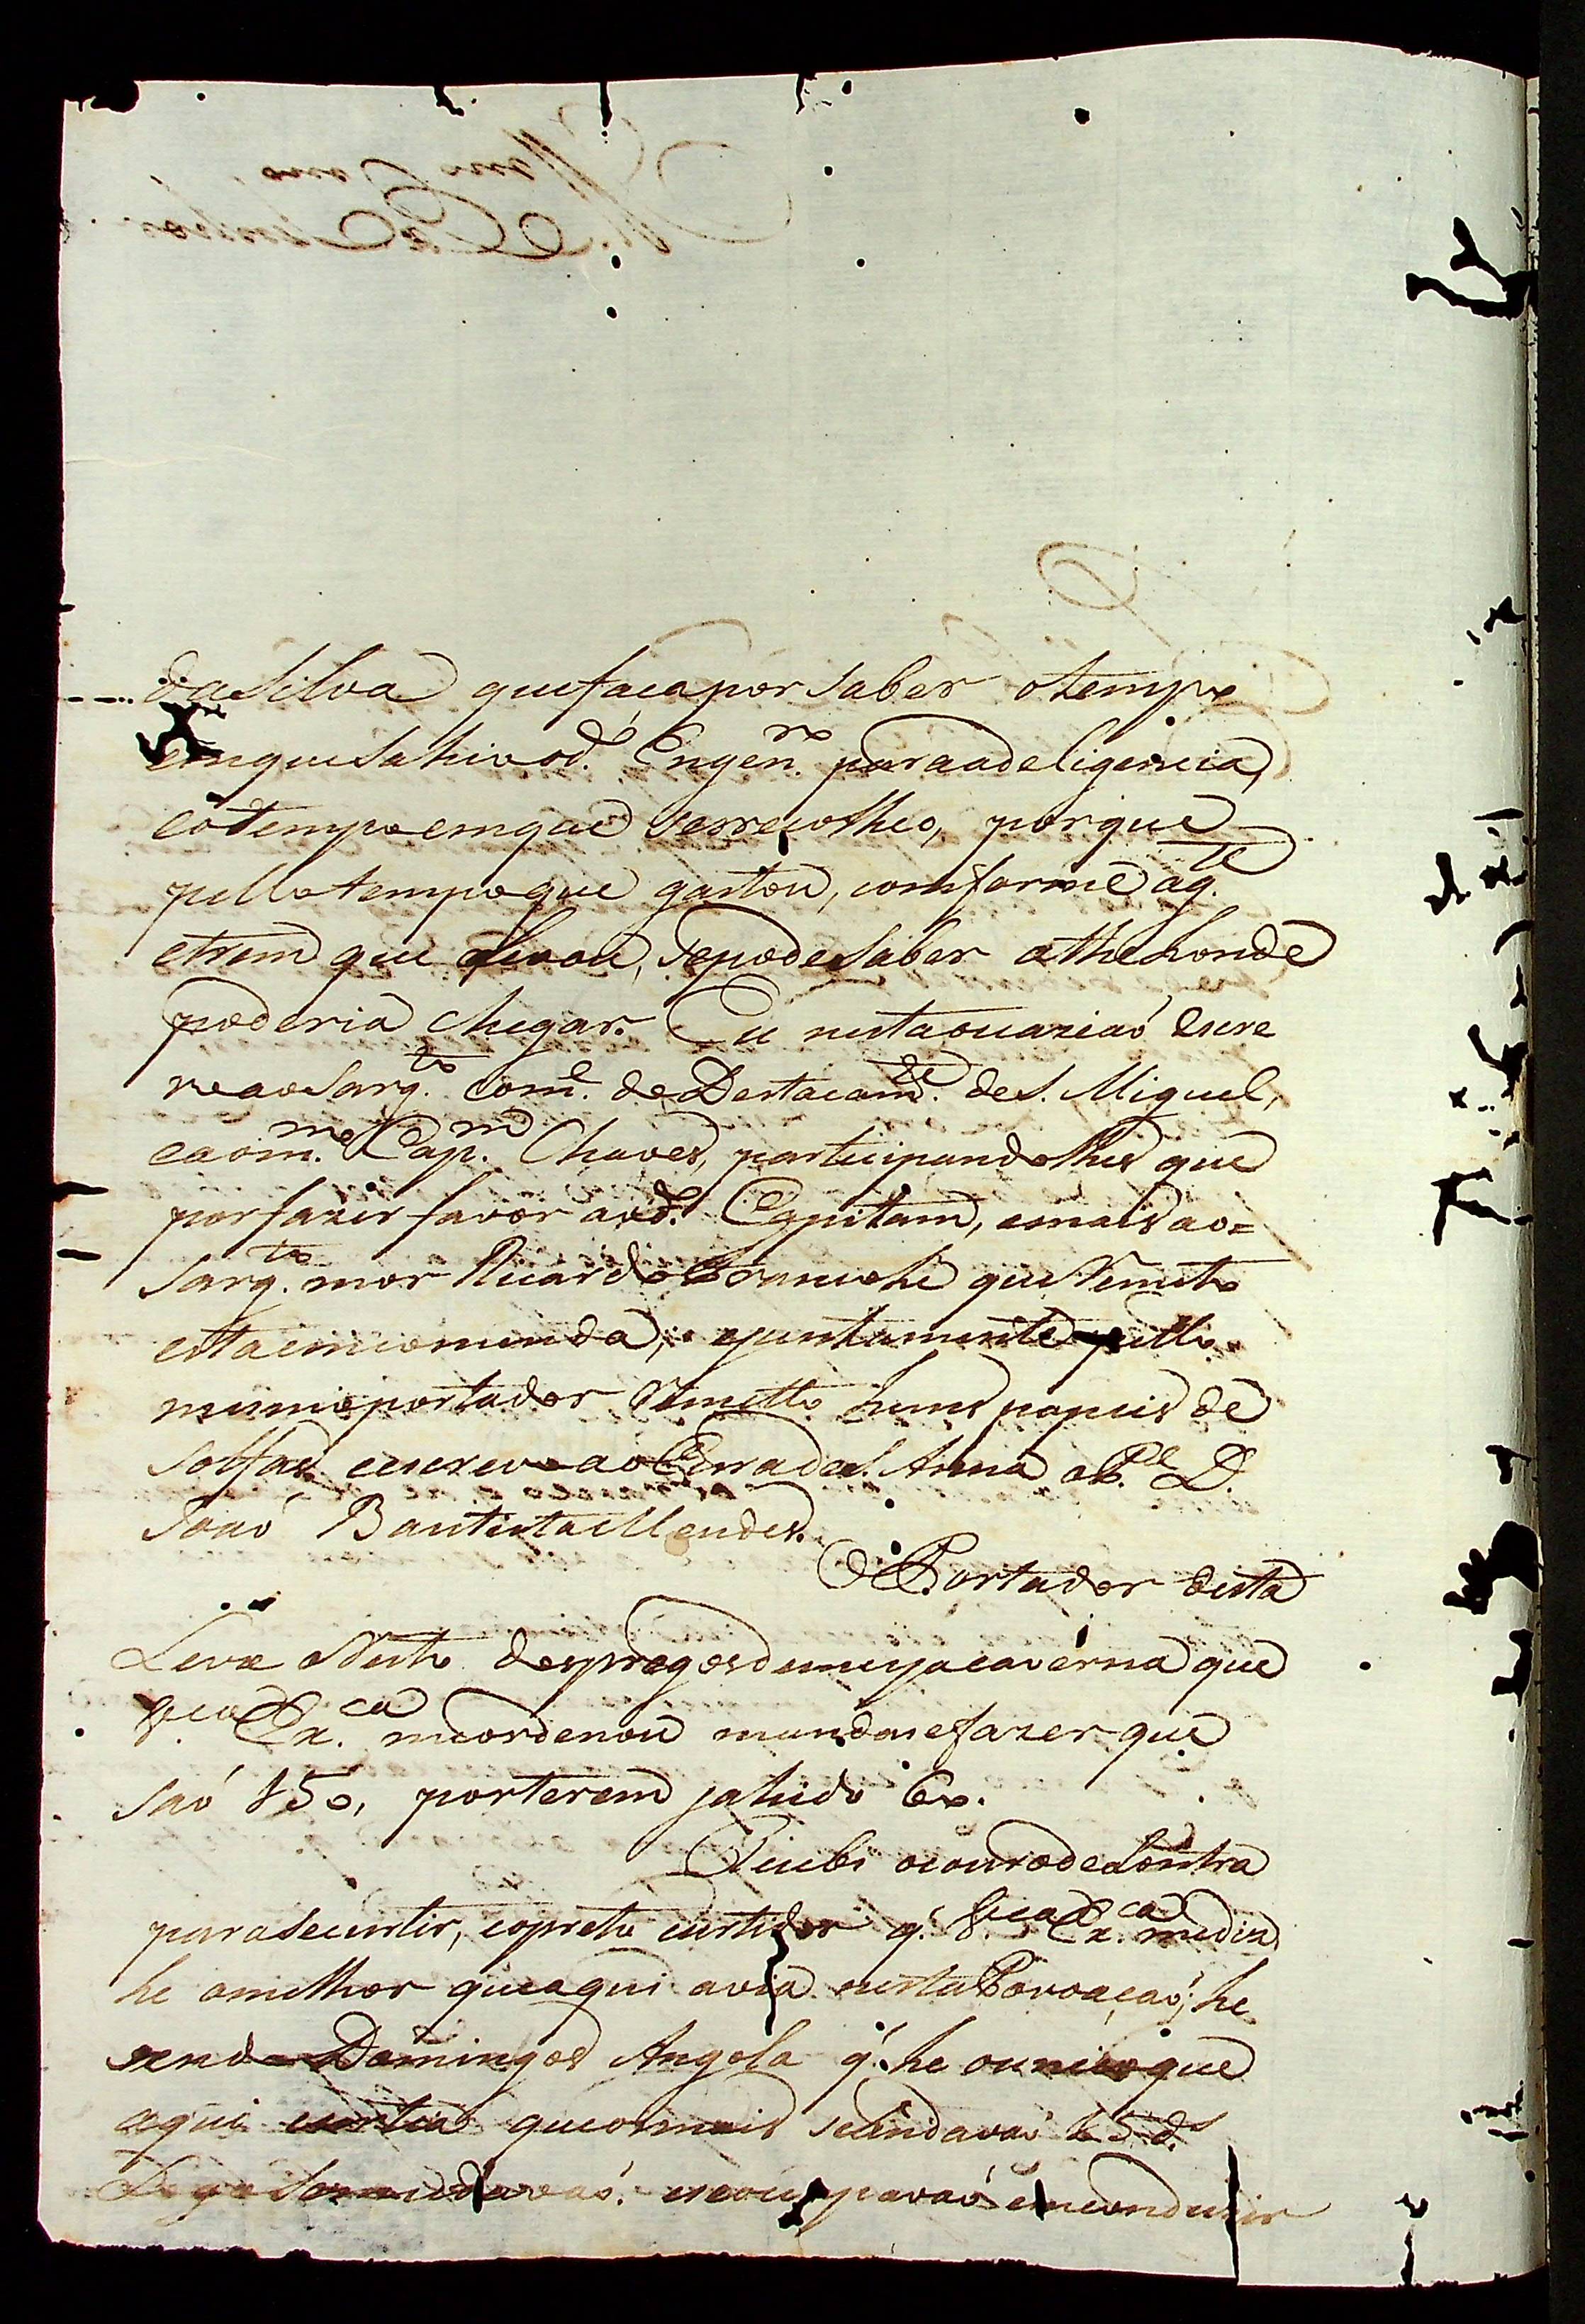 da Silva que faça por saber o tempo
em que sahio o d.º Engen.ro para a deligencia,
e o tempo em que serrecolheo, porque
pello tempo que gastou, comforme a g.te
e trem que levou, se pode saber athe honde
poderia chegar. Eu nesta ouaziaõ escre
vo ao Sarg.to Com.e do Destacam.to de S. Miguel,
e ao m.mo Cap.m Chaves, participandolhes que
por fazer favor ao d.º Capitam, e mais ao=
Sarg.to mor Ricardo Franco he que Remeto
esta emcomenda, e juntamente pello
mesmo portador Remetto huns papeis de
solfas e escrevo ao Cura de S. Anna o P.e D.
Joaõ Bautista Mendes.
O Portador desta
Leva Resto dos pregos de meya caverna que
V.ca Ex.ca me ordenou mandase fazer que
saó 850, por terem ja hido 60.
Recebi o couro de Lontra
para se curtir, e o preto curtidor q. V.ca Ex.ca me diz
he o melhor que aqui avia nesta Povoaçaõ; he
sendo Domingos Angola q. he o unico que
aqui curtia que os mais
Logo se mudavaó. e se ocupavaó em conduzir